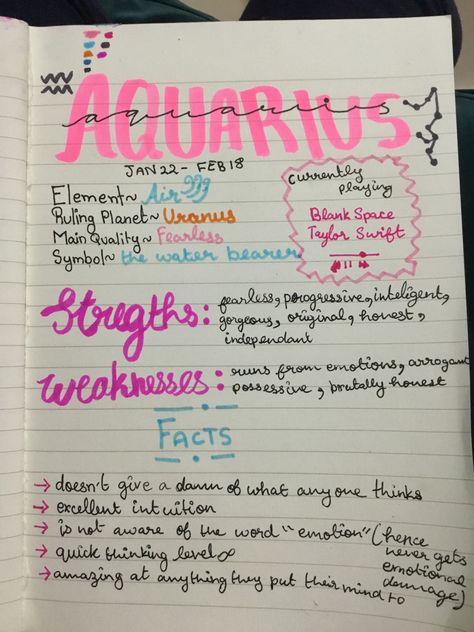 AQUARIUS
aquarius
JAN 22 - FEB 18
Element~ Air
Ruling Planet~ Uranus
Main Quality~ Fearless
Symbol~ the water bearer
Currently
playing
Blank Space
Taylor Swift
Stregths: fearless, porogressive, inteligent,
gorgeous, original, honest,
independant
Weaknesses: runs from emotions, arrogant
possessive, brutally honest
FACTS
→ doesn't give a damn of what anyone thinks
→ excellent intuition
→ is not aware of the word "emotion" (hence
never gets
emotional
damage)
→ quick thinking level ∞
→ amazing at anything they put their mind to